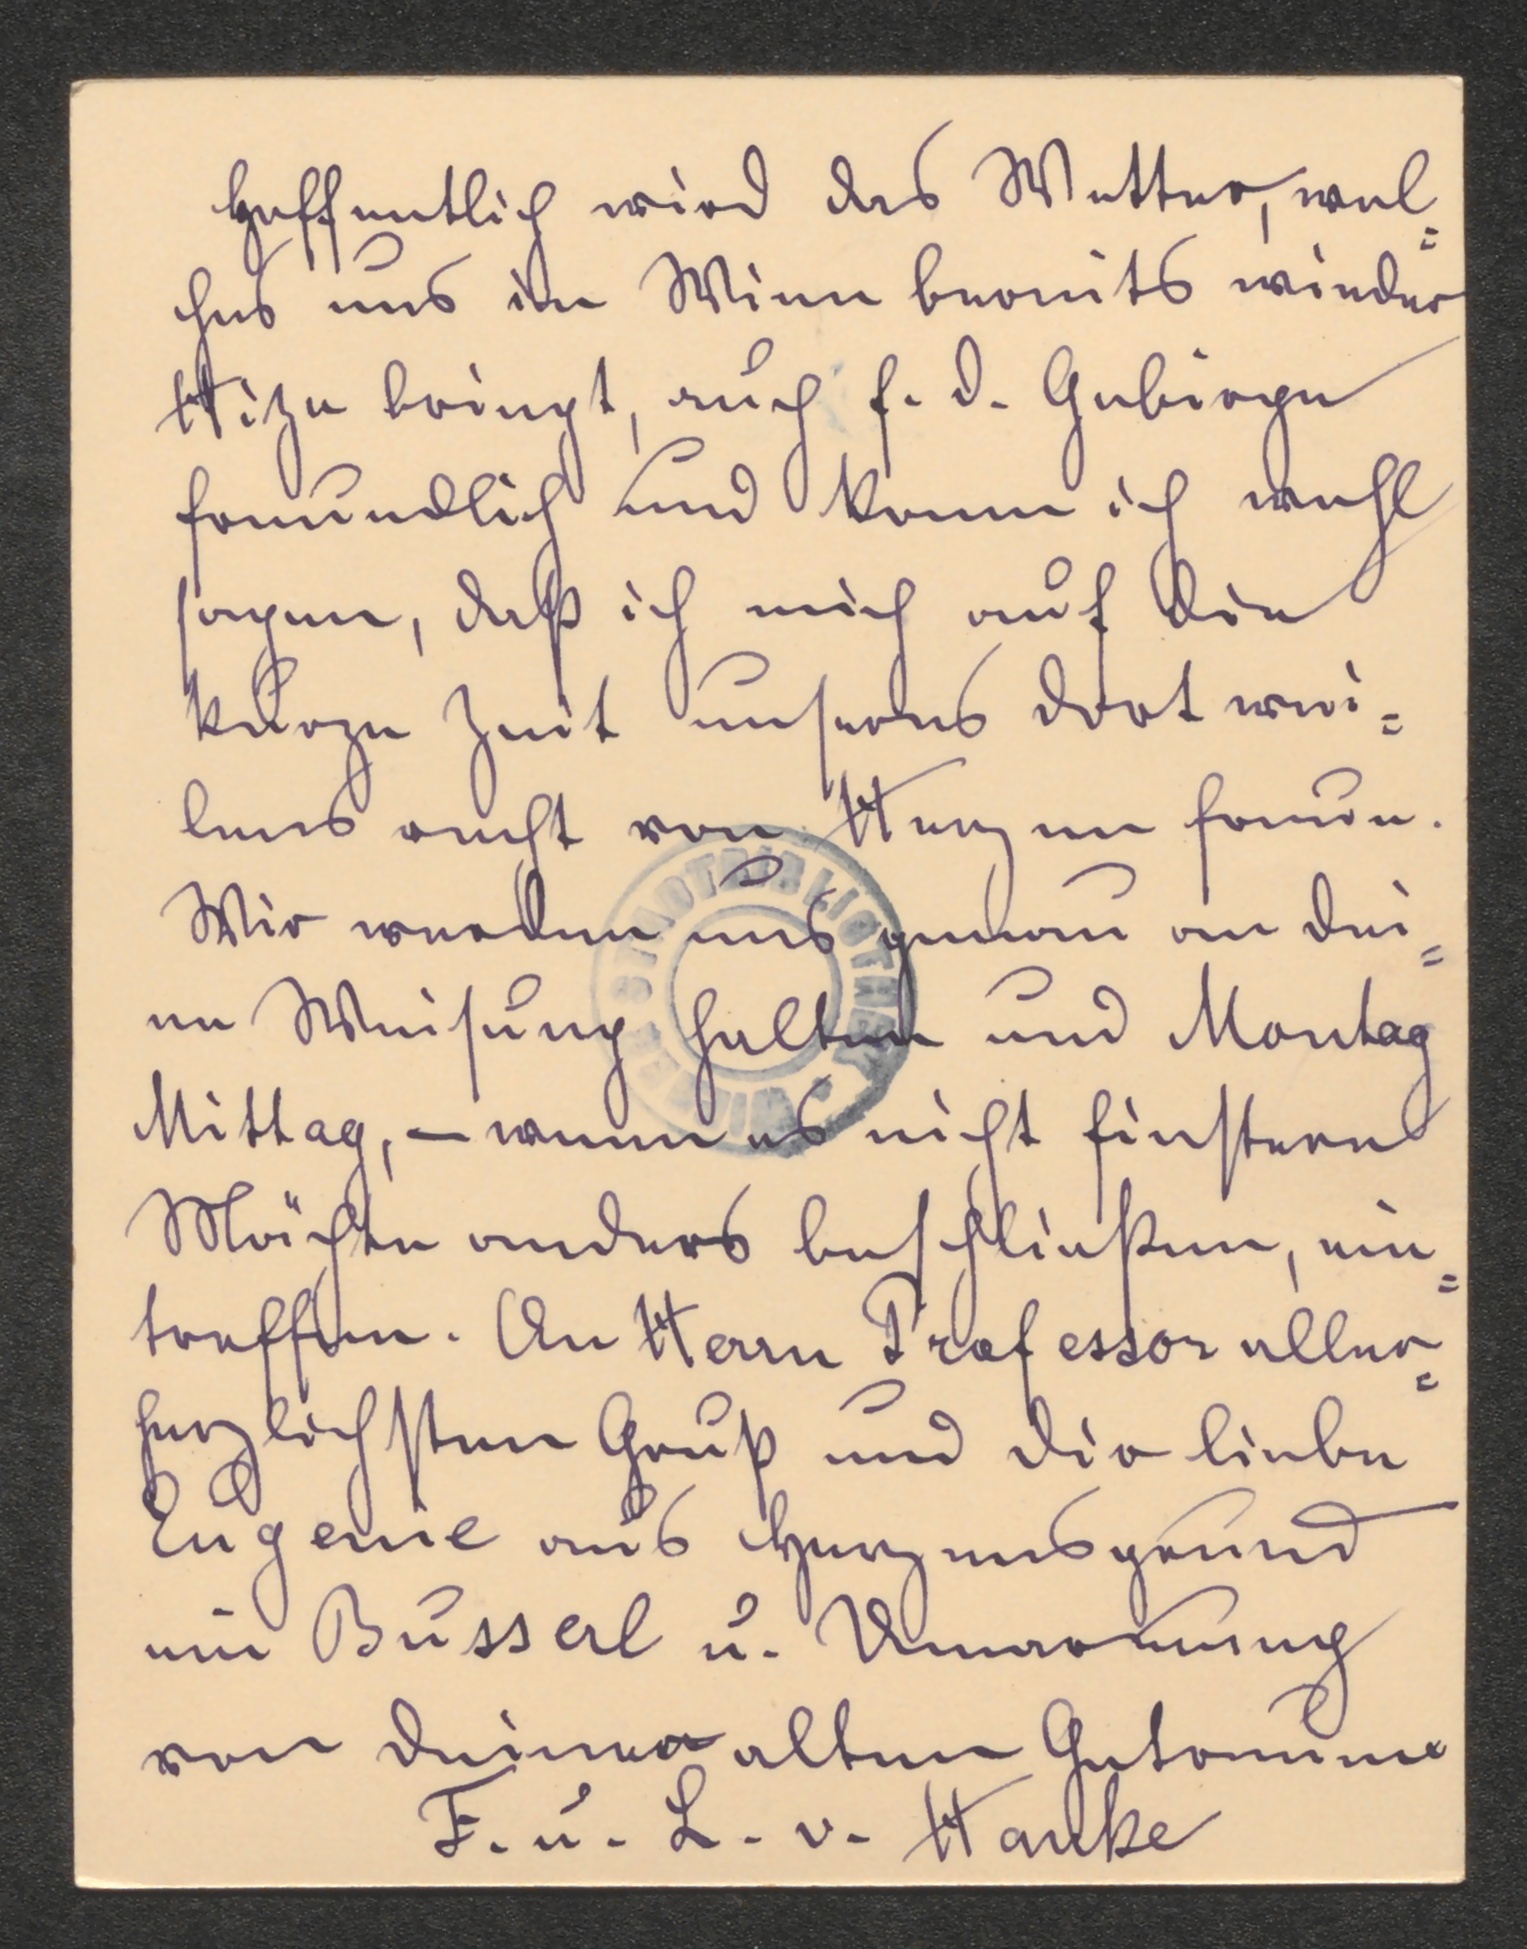 Hoffentlich wird das Wetter, wel=
ches uns in Wien bereits wieder
Hize bringt, auch f. d. Gebirge
freundlich und kann ich wohl
sagen, daß ich mich auf die
kurze Zeit unseres dort wei=
lens recht von Herzen freue.
Wir werden uns genau an dei=
ne Weisung halten und Montag
Mittag, – wenn es nicht finstere
Mächte anders beschließen, ein=
treffen. An Herrn Professor aller=
herzlichsten Gruß und dir liebe
Eugenie aus Herzensgrund
ein Busserl u. Umarmung
von deinen alten Getreuen
F. u. L. v. Hanke
STADTBIBLIOTHEK WIENER